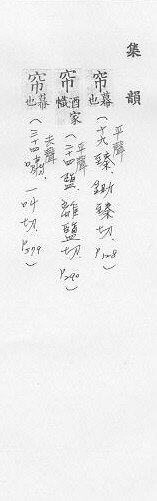 集韻
帘 幕也 (平聲 十九臻. 鋤臻切. P128)
帘 酒家幟 (平聲 二十四鹽 離鹽切. P290)
帘 幕也 (去聲 三十四嘯. 一叫切. P579)